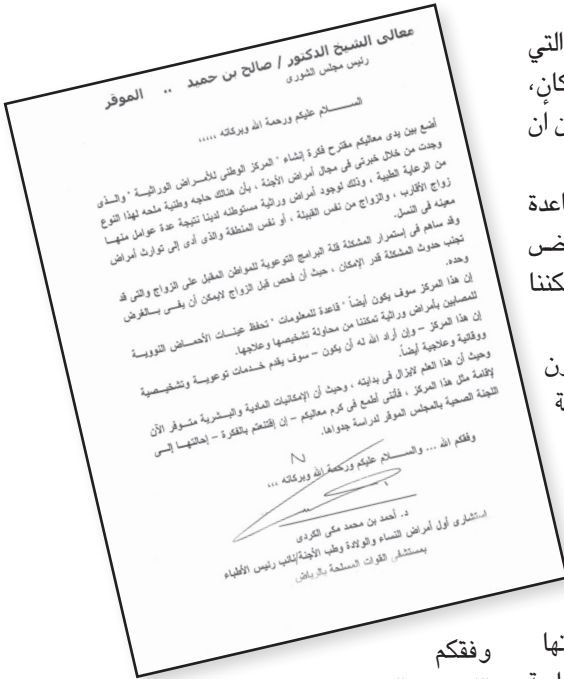 معالى الشيخ الدكتور / صالح بن حميد .. الموقر
رئيس مجلس الشورى
الســـــلام عليكم ورحمة الله وبركاته ،،،،،
أضع بين يدى معاليكم مقترح فكرة إنشاء " المركز الوطنى للأمــراض الوراثيــة " والــذى
وجدت من خلال خبرتى فى مجال أمراض الأجنة ، بأن هنالك حاجه وطنية ملحه لهذا النوع
من الرعاية الطبية ، وذلك لوجود أمراض وراثية مستوطنه لدينا نتيجة عدة عوامل منهــا
زواج الأقارب ، والزواج من نفس القبيلة ، أو نفس المنطقة والذى أدى إلى توارث أمراض
معينه فى النسل.
وقد ساهم فى إستمرار المشكلة قلة البرامج التوعوية للمواطن المقبل على الزواج والتى قد
تجنب حدوث المشكلة قدر الإمكان ، حيث أن فحص قبل الزواج لايمكن أن يفــى بــالغرض
وحده.
إن هذا المركز سوف يكون أيضاً " قاعدة للمعلومات " تحفظ عينــات الأحمــاض النوويــة
للمصابين بأمراض وراثية تمكننا من محاولة تشخيصها وعلاجها.
إن هذا المركز – وإن أراد الله له أن يكون – سوف يقدم خــدمات توعويــة وتشخيــصية
ووقائية وعلاجية أيضاً.
وحيث أن هذا العلم لايزال فى بدايته ، وحيث أن الإمكانيات المادية والبــشرية متــوفر الآن
لإقامة مثل هذا المركز ، فأننى أطمع فى كرم معاليكم – إن إقتنعتم بالفكرة – إحالتهــا إلــى
اللجنة الصحية بالمجلس الموقر لدراسة جدواها.
وفقكم الله ... والســـــلام عليكم ورحمة الله وبركاته ،،،
د. أحمد بن محمد مكى الكردى
استشارى أول أمراض النساء والولادة وطب الأجنة/نائب رئيس الأطباء
بمستشفى القوات المسلحة بالرياض
التي
كان،
ن أن
اعدة
ض
كننا
ون
ة
تها
وفقكم